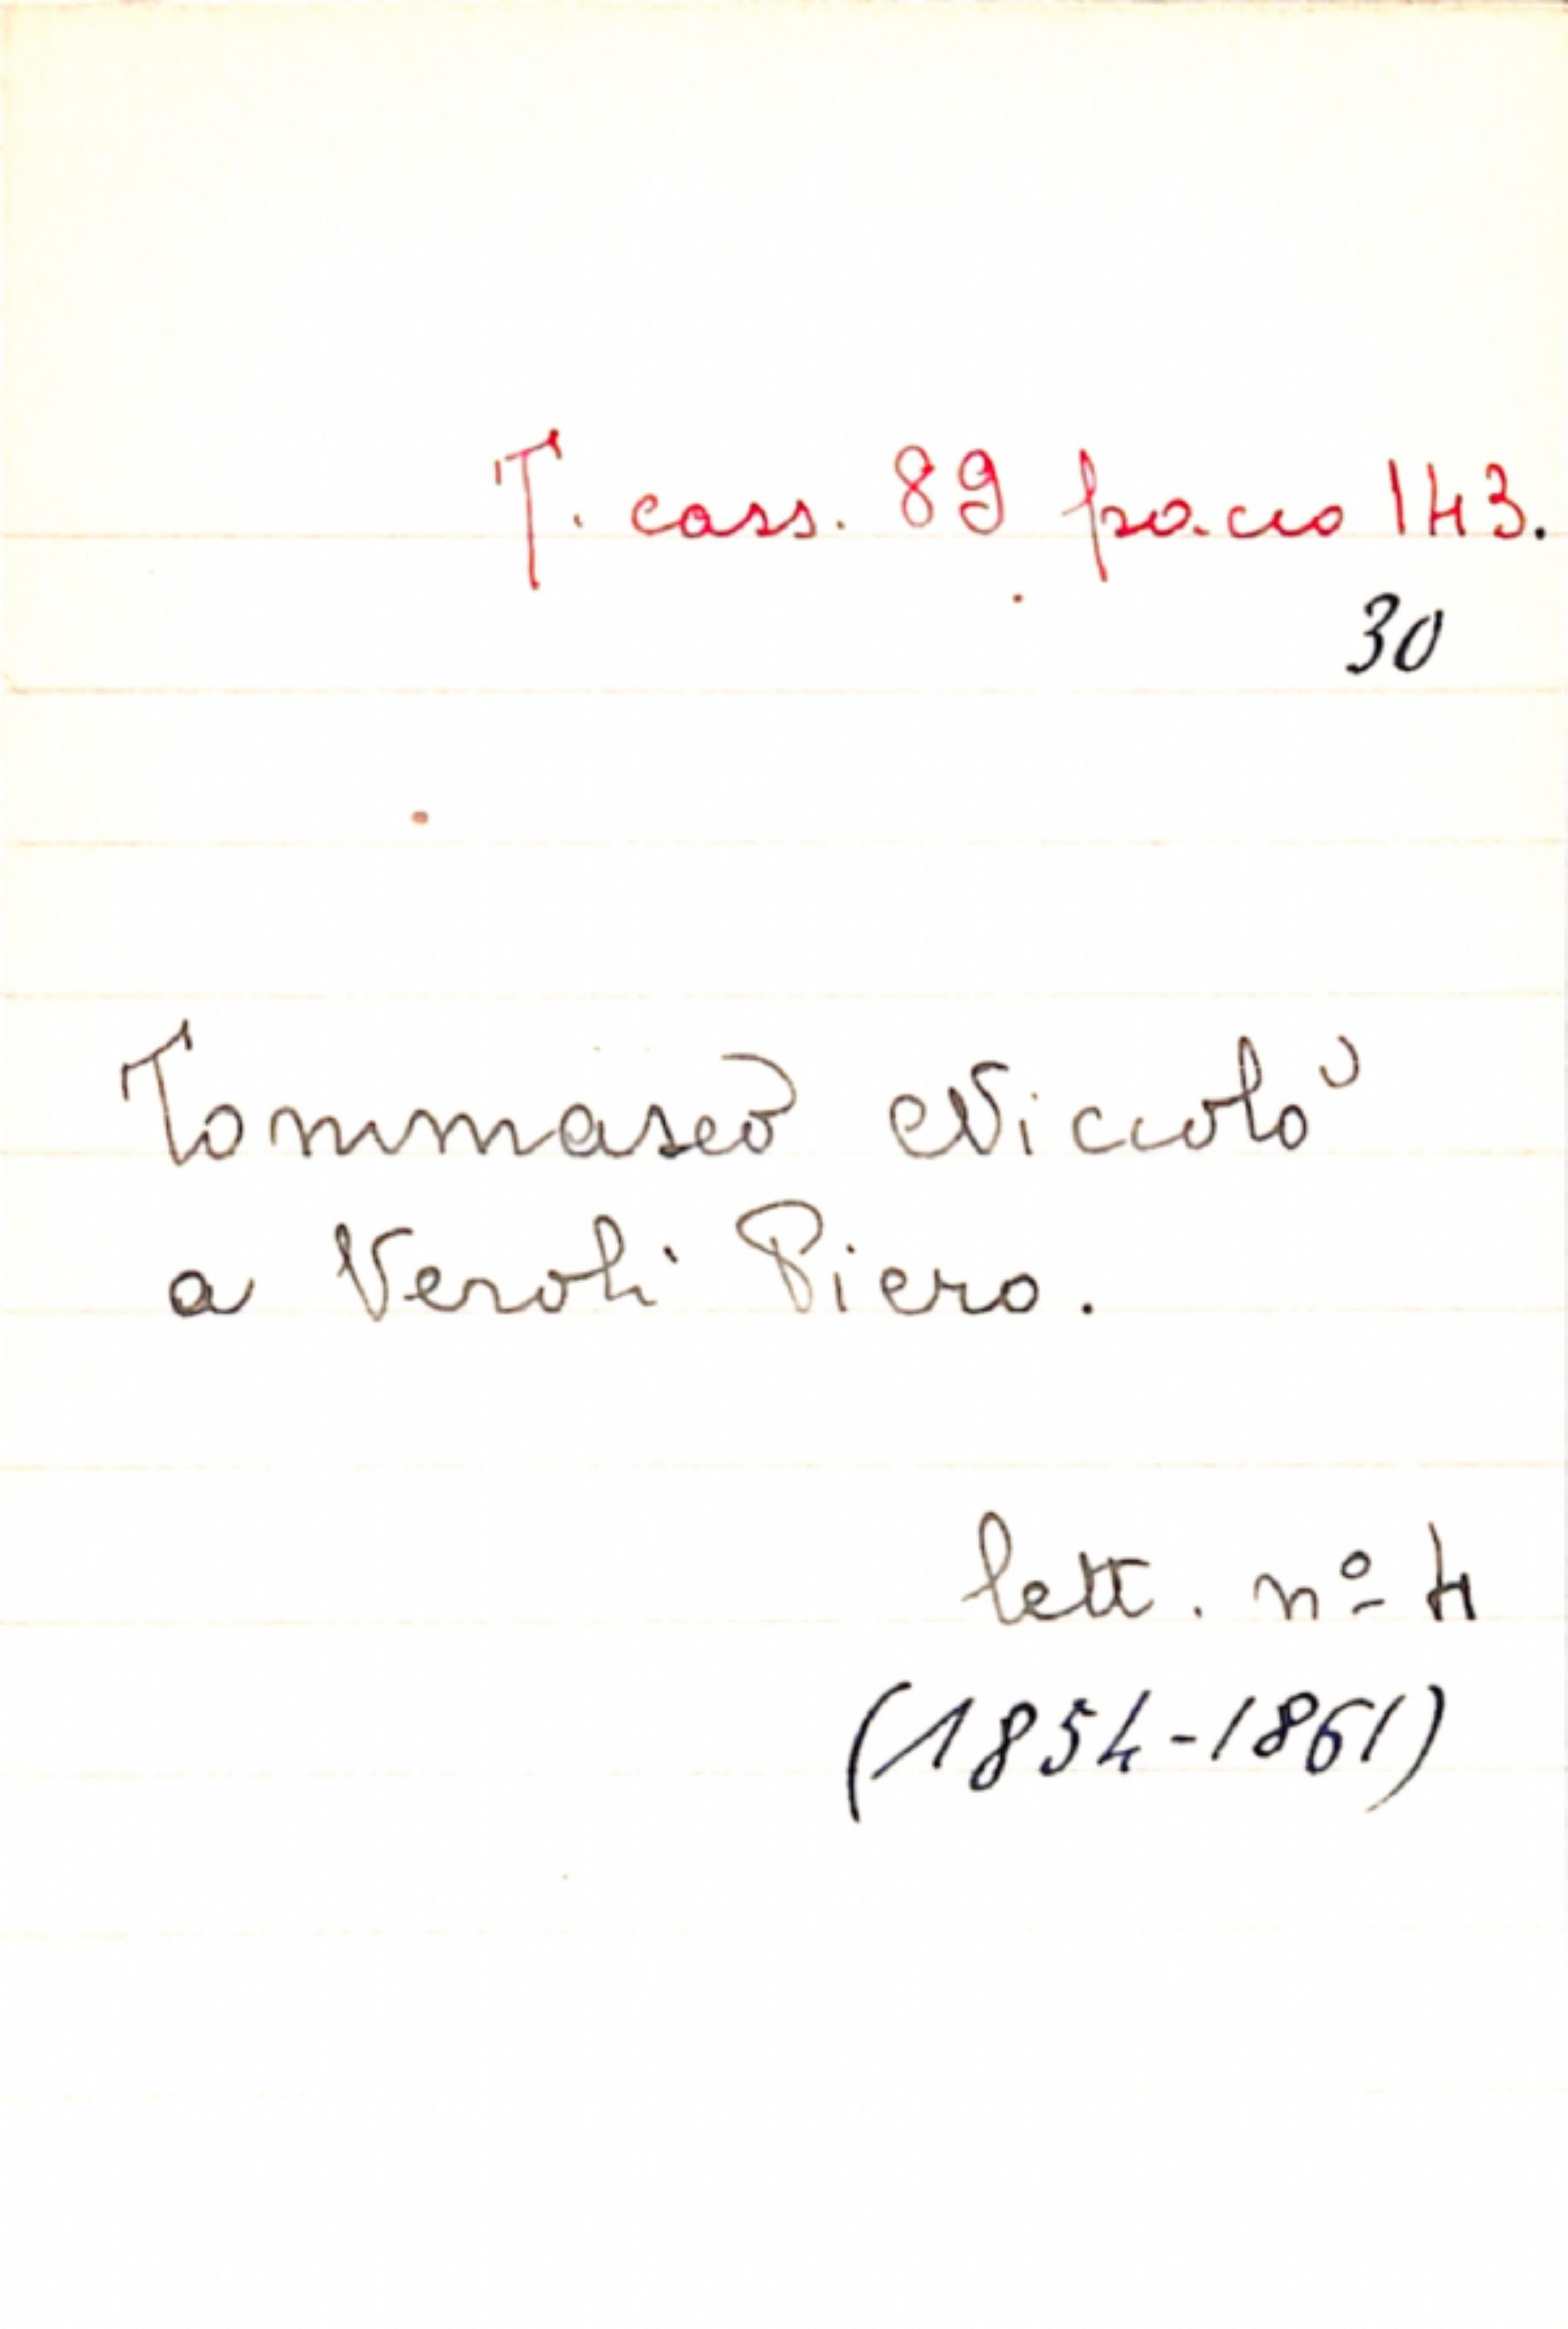 T. cass. 89 pacco 143.
30
Tommaseo Niccolò
a Veroli Piero.
lett. nº 4
(1854-1861)